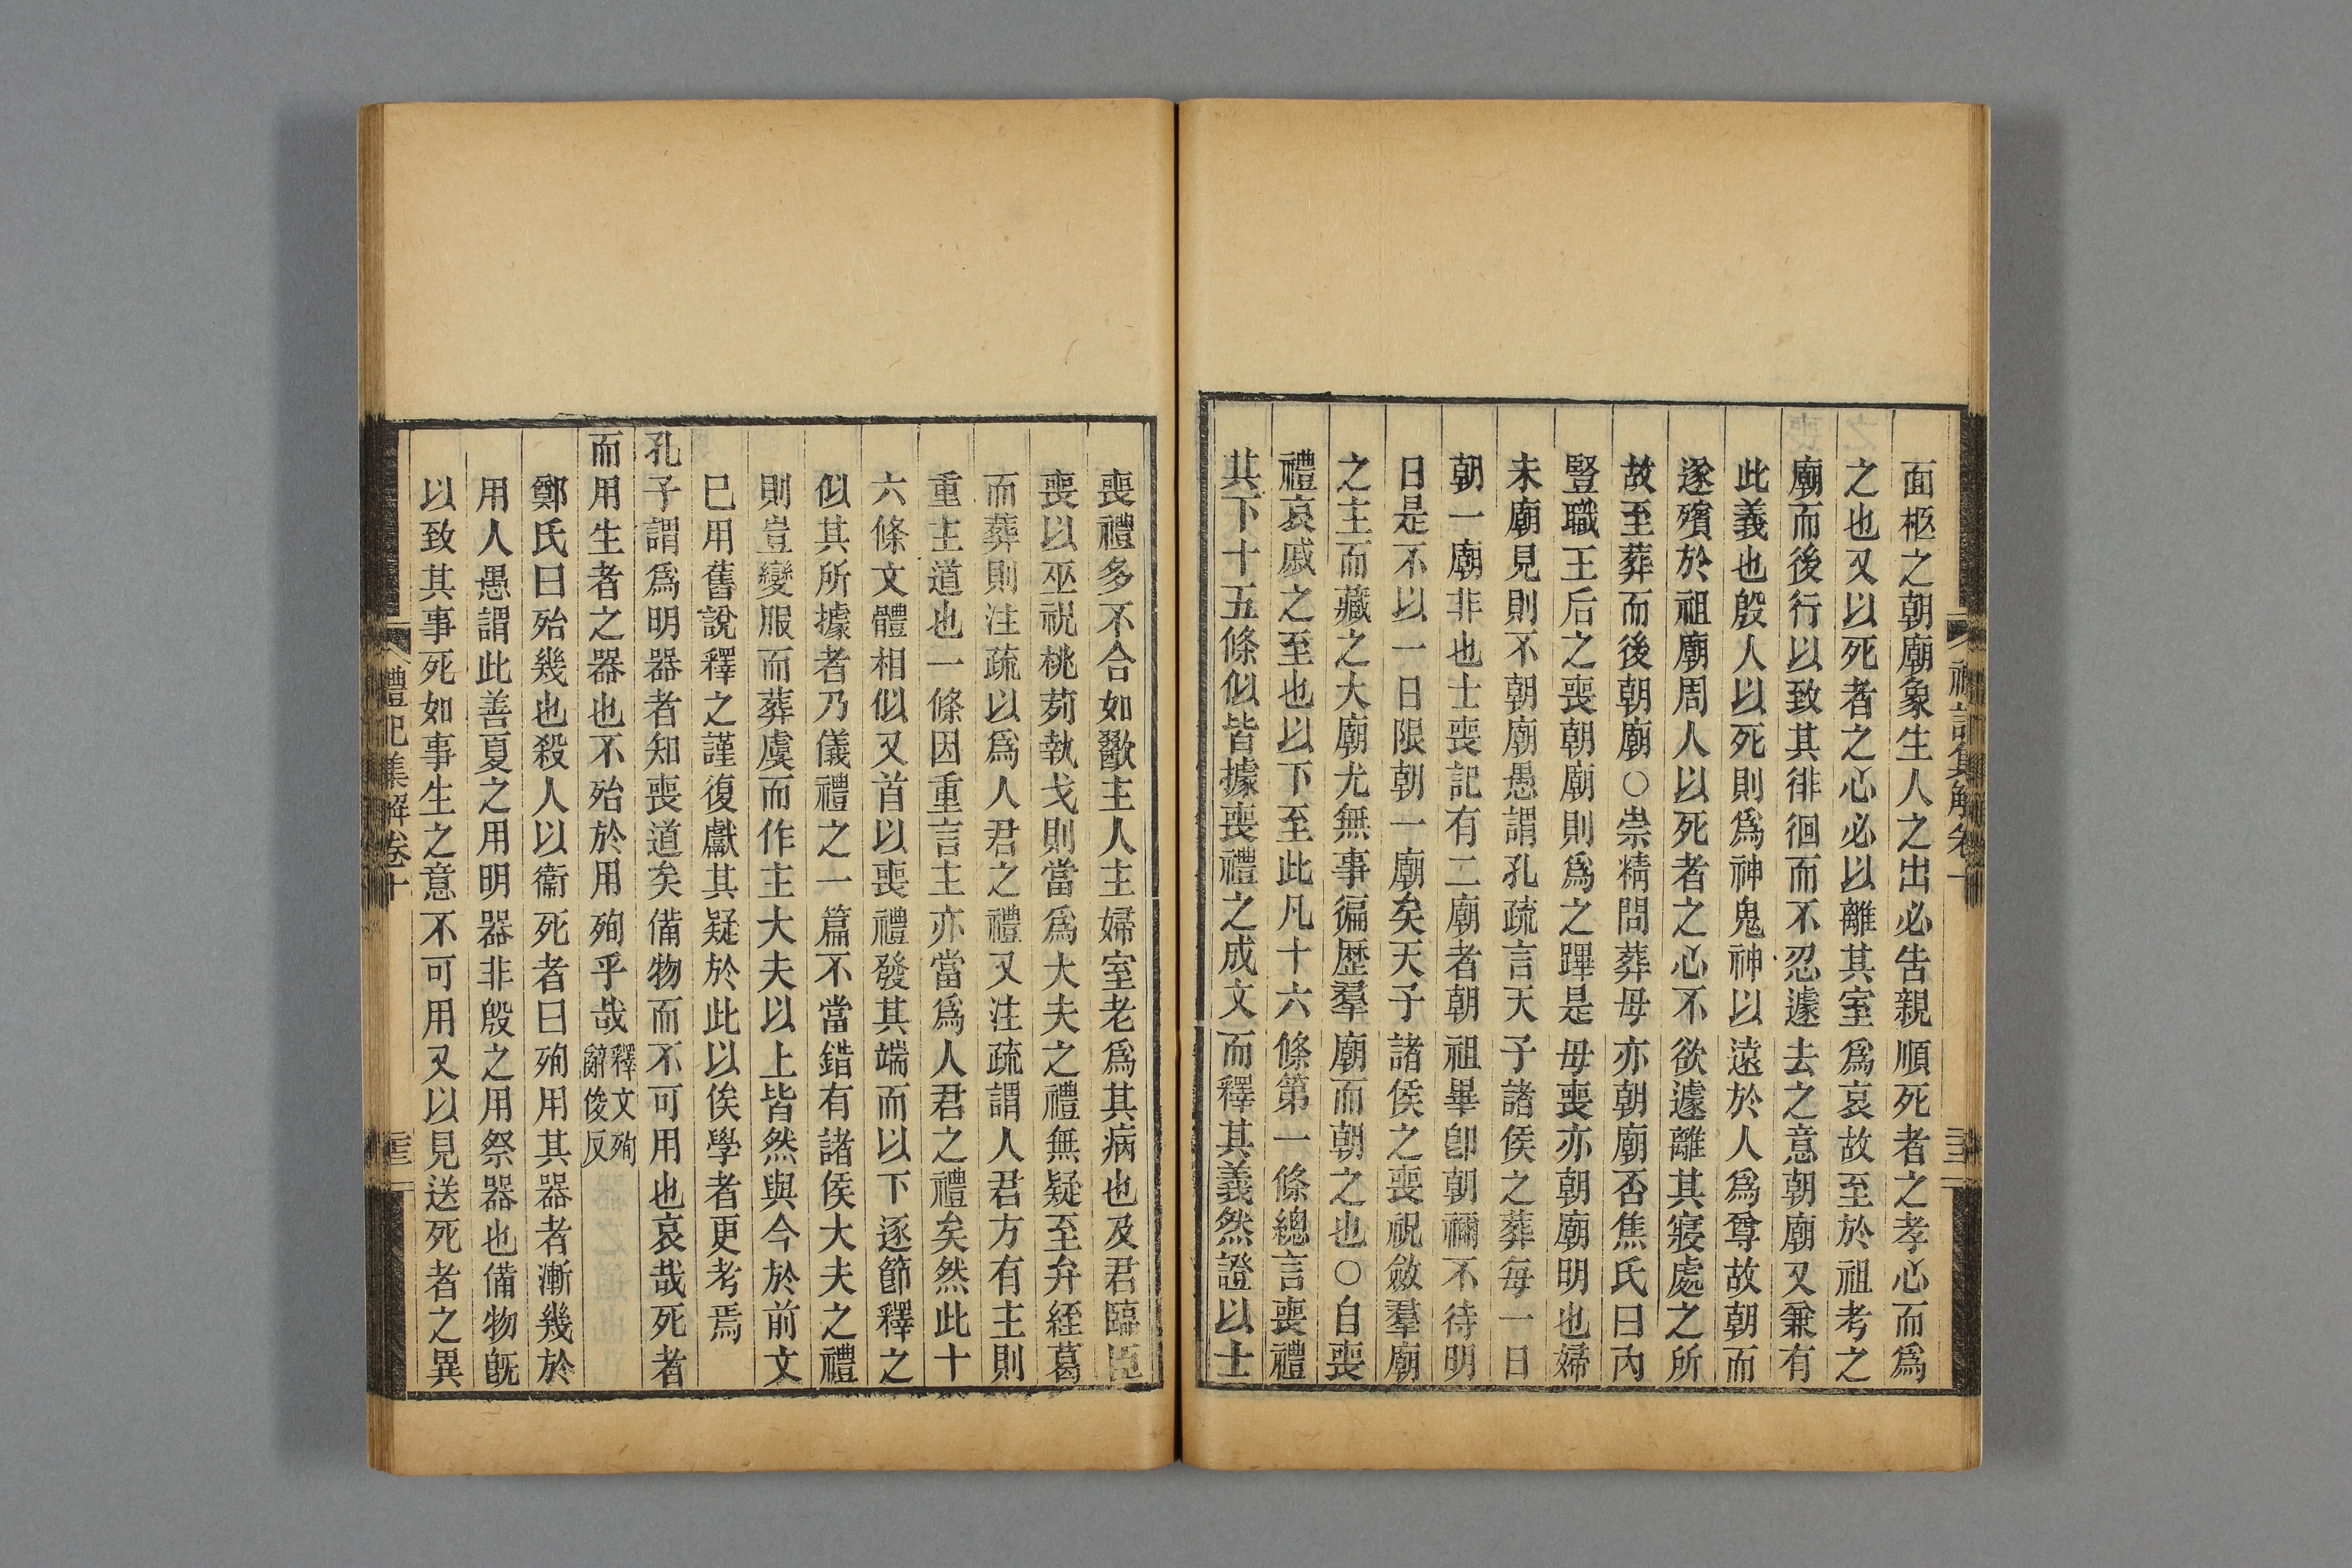 面柩之朝廟象生人之出必告親順死者之孝心而爲
之也又以死者之心必以離其室爲哀故至於祖考之
廟而後行以致其徘徊而不忍遽去之意朝廟又兼有
此義也殷人以死則爲神鬼神以遠於人爲尊故朝而
遂殯於祖廟周人以死者之心不欲遽離其寢處之所
故至葬而後朝廟○崇精問葬母亦朝廟否焦氏曰內
豎職王后之喪朝廟則爲之蹕是母喪亦朝廟明也婦
未廟見則不朝廟愚謂孔疏言天子諸侯之葬每一日
朝一廟非也士喪記有二廟者朝祖畢卽朝禰不待明
日是不以一日限朝一廟矣天子諸侯之喪祝斂羣廟
之主而藏之大廟尤無事徧歷羣廟而朝之也○自喪
禮哀戚之至也以下至此凡十六條第一條總言喪禮
其下十五條似皆據喪禮之成文而釋其義然證以士
喪禮多不合如歠主人主婦室老爲其病也及君臨臣
喪以巫祝桃茢執戈則當爲大夫之禮無疑至弁絰葛
而葬則注疏以爲人君之禮又注疏謂人君方有主則
重主道也一條因重言主亦當爲人君之禮矣然此十
六條文體相似又首以喪禮發其端而以下逐節釋之
似其所據者乃儀禮之一篇不當錯有諸侯大夫之禮
則豈變服而葬虞而作主大夫以上皆然與今於前文
巳用舊說釋之謹復獻其疑於此以俟學者更考焉
孔子謂爲明器者知喪道矣備物而不可用也哀哉死者
而用生者之器也不殆於用殉乎哉釋文殉
辭俊反
鄭氏曰殆幾也殺人以衞死者曰殉用其器者漸幾於
用人愚謂此善夏之用明器非殷之用祭器也備物旣
以致其事死如事生之意不可用又以見送死者之異
禮記集解卷十